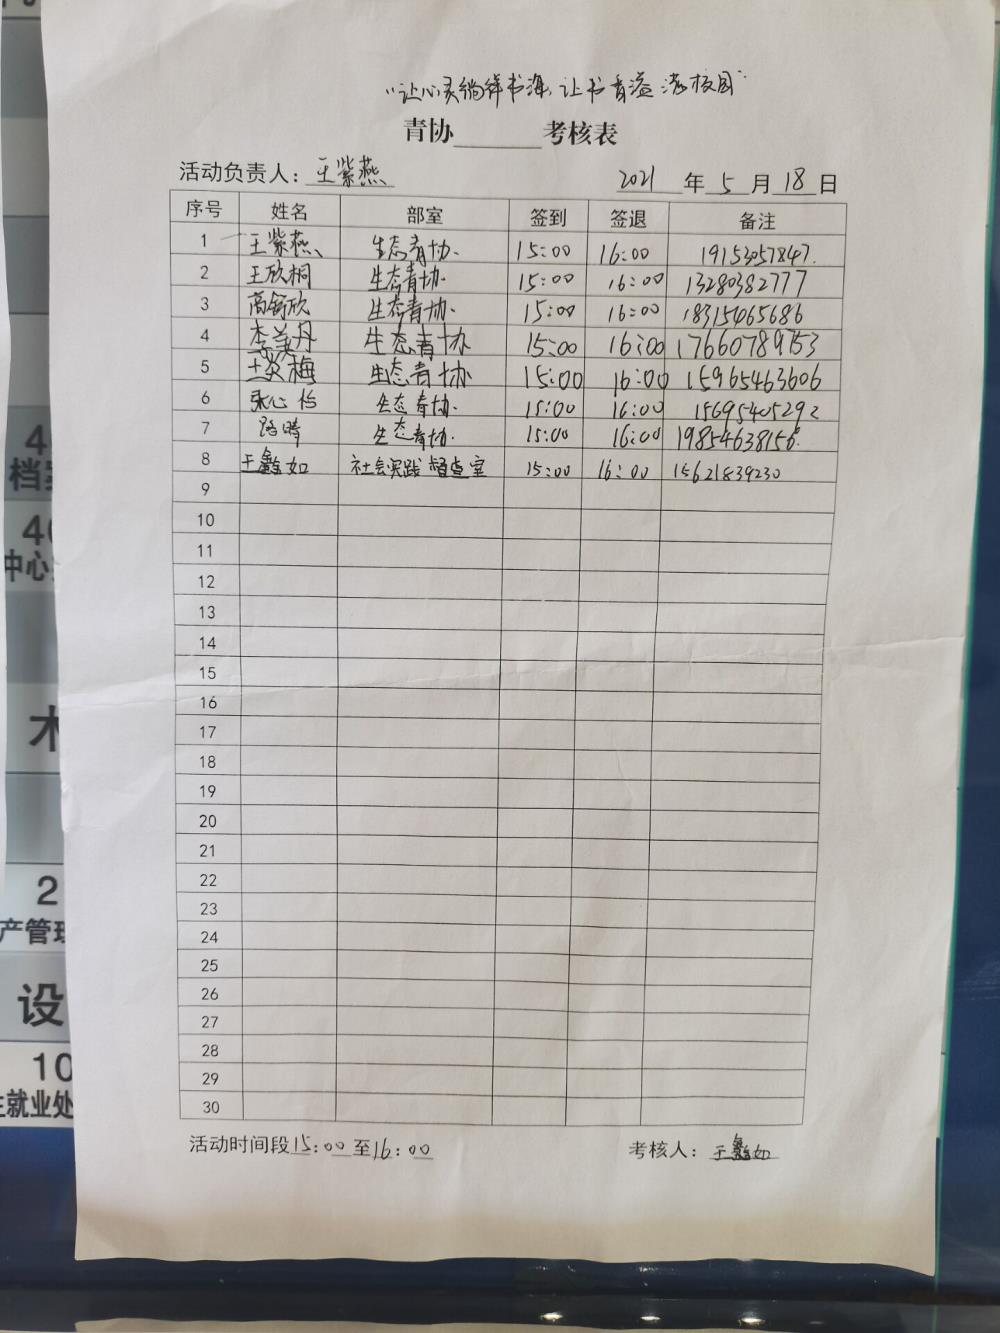 “让心灵徜徉书海,让书香溢满校园”
青协______考核表
活动负责人：王紫燕 2021 年 5 月 18 日
序号 姓名 部室 签到 签退 备注
1 王紫燕 生态青协 15:00 16:00 19153057847
2 王欣桐 生态青协 15:00 16:00 13280382777
3 高舒欣 生态青协 15:00 16:00 18315465686
4 李美丹 生态青协 15:00 16:00 17660789753
5 梅 生态青协 15:00 16:00 15965463606
6 张心怡 生态青协 15:00 16:00 15695405292
7 路晴 生态青协 15:00 16:00 19854638156
8 王鑫如 社会实践督查室 15:00 16:00 15621839230
9
10
11
12
13
14
15
16
17
18
19
20
21
22
23
24
25
26
27
28
29
30
活动时间段15:00至16:00 考核人：王鑫如
4
档
40
中心
木
2
产管理
设
10
就业处